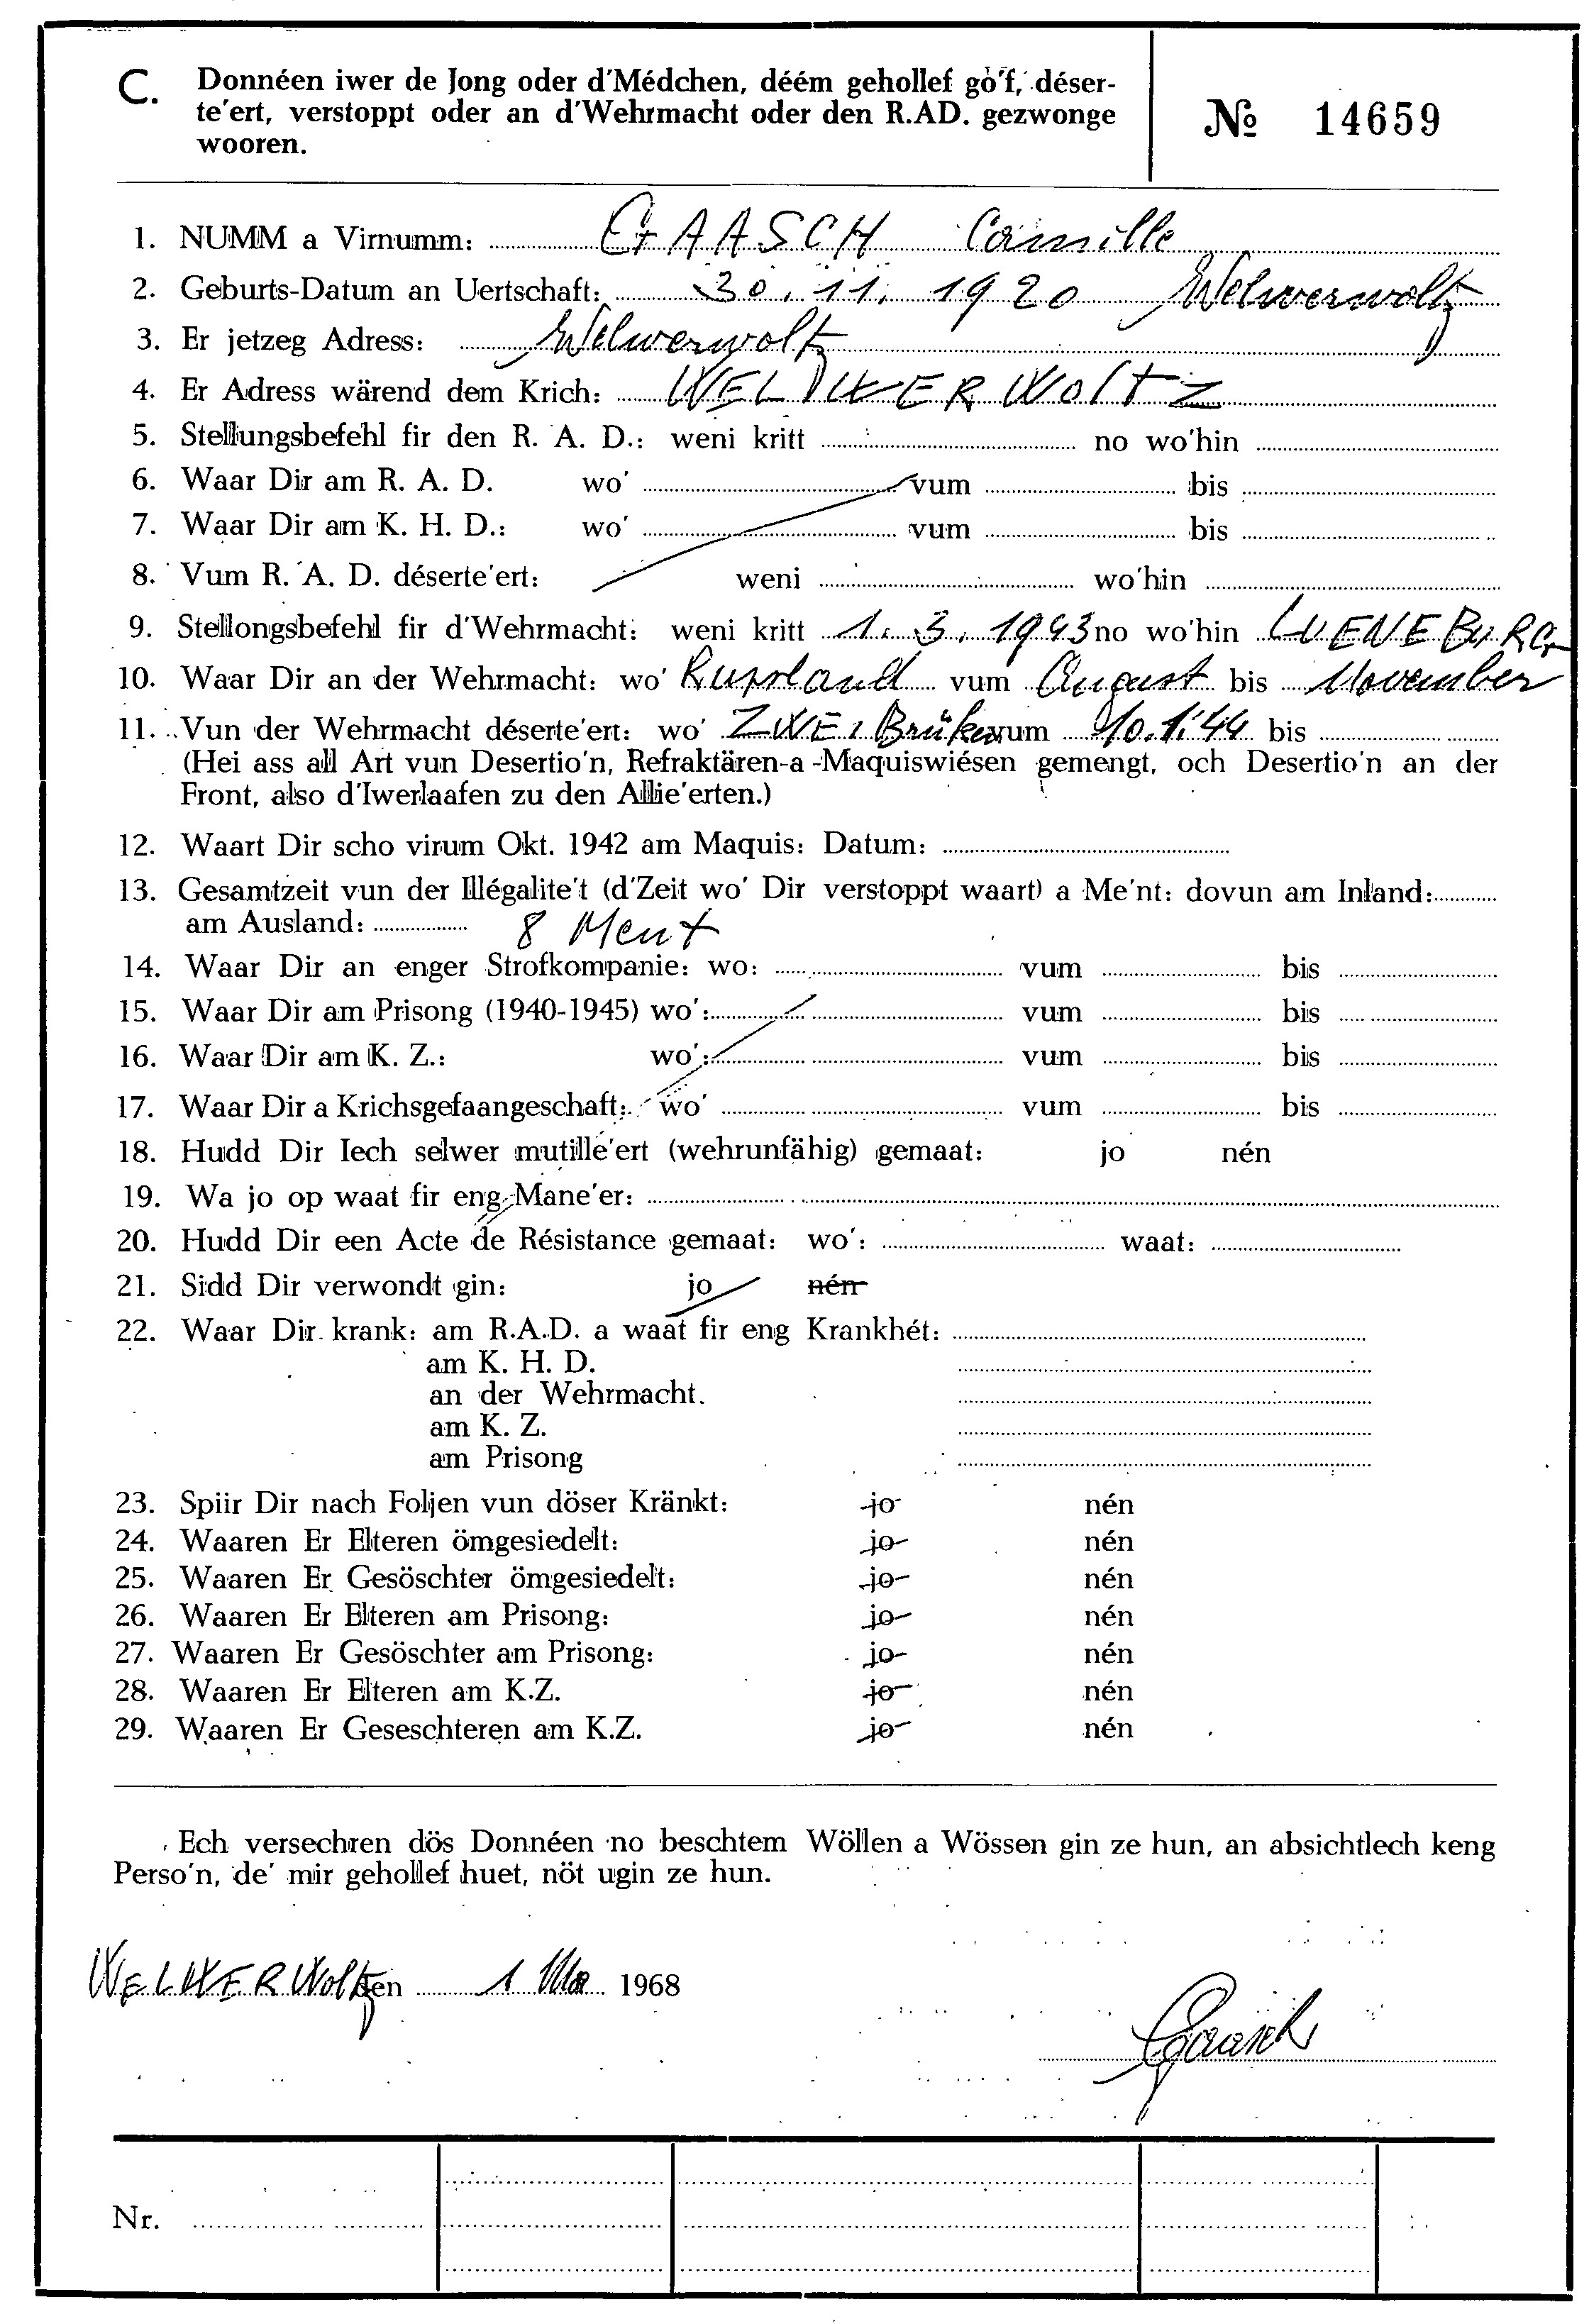 C. Donnéen iwer de Jong oder d'Médchen, déém gehollef gò'f, déser-
te'ert, verstoppt oder an d'Wehrmacht oder den R.AD. gezwonge
wooren.
№ 14659
1. NUMM a Virnumm: GAASCH Camille
2. Geburts-Datum an Uertschaft: 30. 11. 1920 Welwerwoltz
3. Er jetzeg Adress: Welwerwoltz
4. Er Adress wärend dem Krich: WELWERWOLTZ
5. Stellungsbefehl fir den R. A. D.: weni kritt no wo'hin
6. Waar Dir am R. A. D. wo' vum bis
7. Waar Dir am K. H. D.: wo' vum bis
8. Vum R. A. D. déserte'ert: weni wo'hin
9. Stellongsbefehl fir d'Wehrmacht: weni kritt 1. 3. 1943 no wo'hin LUENEBURG
10. Waar Dir an der Wehrmacht: wo' Russland vum August bis November
11. Vun der Wehrmacht déserte'ert: wo' ZWEIBrüken vum 10.1.44 bis
(Hei ass all Art vun Desertio'n, Refraktären-a-Maquiswiésen gemengt, och Desertio'n an der
Front, also d'Iwerlaafen zu den Allie'erten.)
12. Waart Dir scho virum Okt. 1942 am Maquis: Datum:
13. Gesamtzeit vun der Illégalite't (d'Zeit wo' Dir verstoppt waart) a Me'nt: dovun am Inland:
am Ausland: 8 Ment
14. Waar Dir an enger Strofkompanie: wo: vum bis
15. Waar Dir am Prisong (1940-1945) wo': vum bis
16. Waar Dir am K. Z.: wo': vum bis
17. Waar Dir a Krichsgefaangeschaft: wo' vum bis
18. Hudd Dir Iech selwer mutillé'ert (wehrunfähig) gemaat: jo nén
19. Wa jo op waat fir eng Mane'er:
20. Hudd Dir een Acte de Résistance gemaat: wo': waat:
21. Sidd Dir verwondt gin: jo nén
22. Waar Dir krank: am R.A.D. a waat fir eng Krankhét:
am K. H. D.
an der Wehrmacht.
am K. Z.
am Prisong
23. Spiir Dir nach Foljen vun döser Kränkt: jo nén
24. Waaren Er Elteren ömgesiedelt: jo nén
25. Waaren Er Gesöschter ömgesiedelt: jo nén
26. Waaren Er Elteren am Prisong: jo nén
27. Waaren Er Gesöschter am Prisong: jo nén
28. Waaren Er Elteren am K.Z. jo nén
29. Waaren Er Geseschteren am K.Z. jo nén
Ech versechren dös Donnéen no beschtem Wöllen a Wössen gin ze hun, an absichtlech keng
Perso'n, de' mir gehollef huet, nöt ugin ze hun.
WELWERWoltz den 1 Ma 1968
Gaasch
Nr.